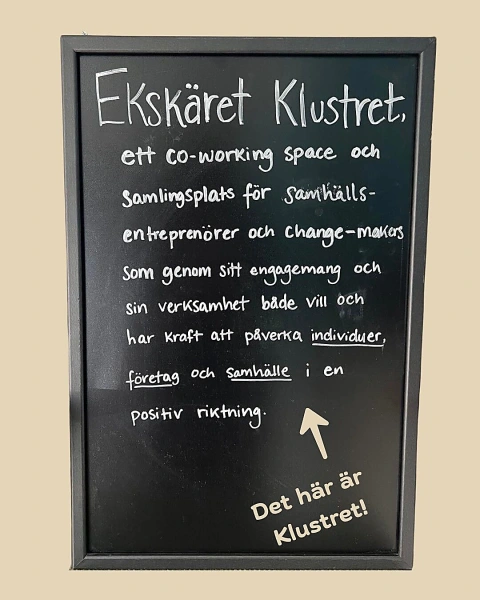 Ekskäret Klustret,
ett co-working space och
samlingsplats för samhälls-
entreprenörer och change-makers
som genom sitt engagemang och
sin verksamhet både vill och
har kraft att påverka individuer,
företag och samhälle i en
positiv riktning.
Det här är
Klustret!